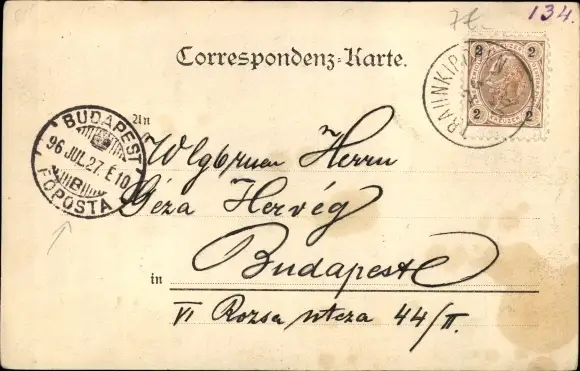 134.
Correspondenz-Karte.
2 2
2 2
BUDAPEST
96 JUL. 27. E 10
B
FŐPOSTA
An
Wlgbruen Herrn
Géza Hervég
in Budapest
VI Rozsa utcza 44/II.